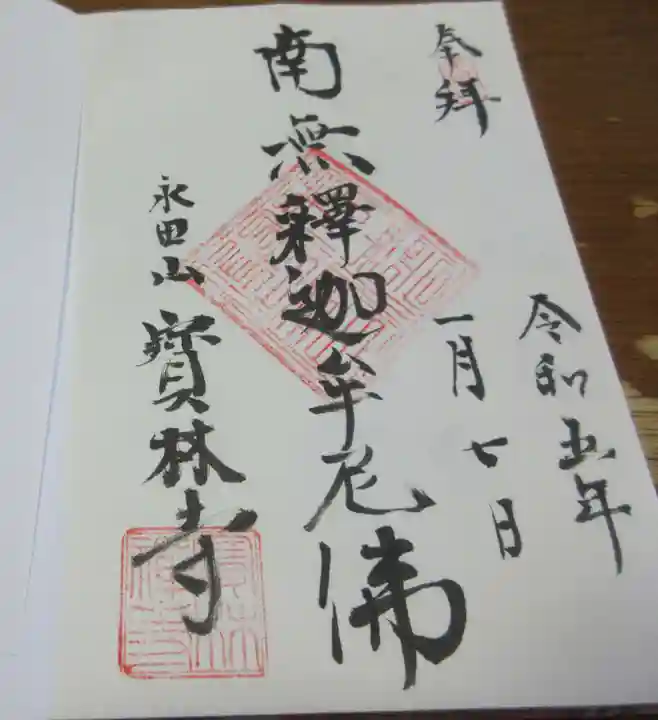 奉拜
令和五年
一月七日
南無釋迦牟尼佛
永田山寶林寺